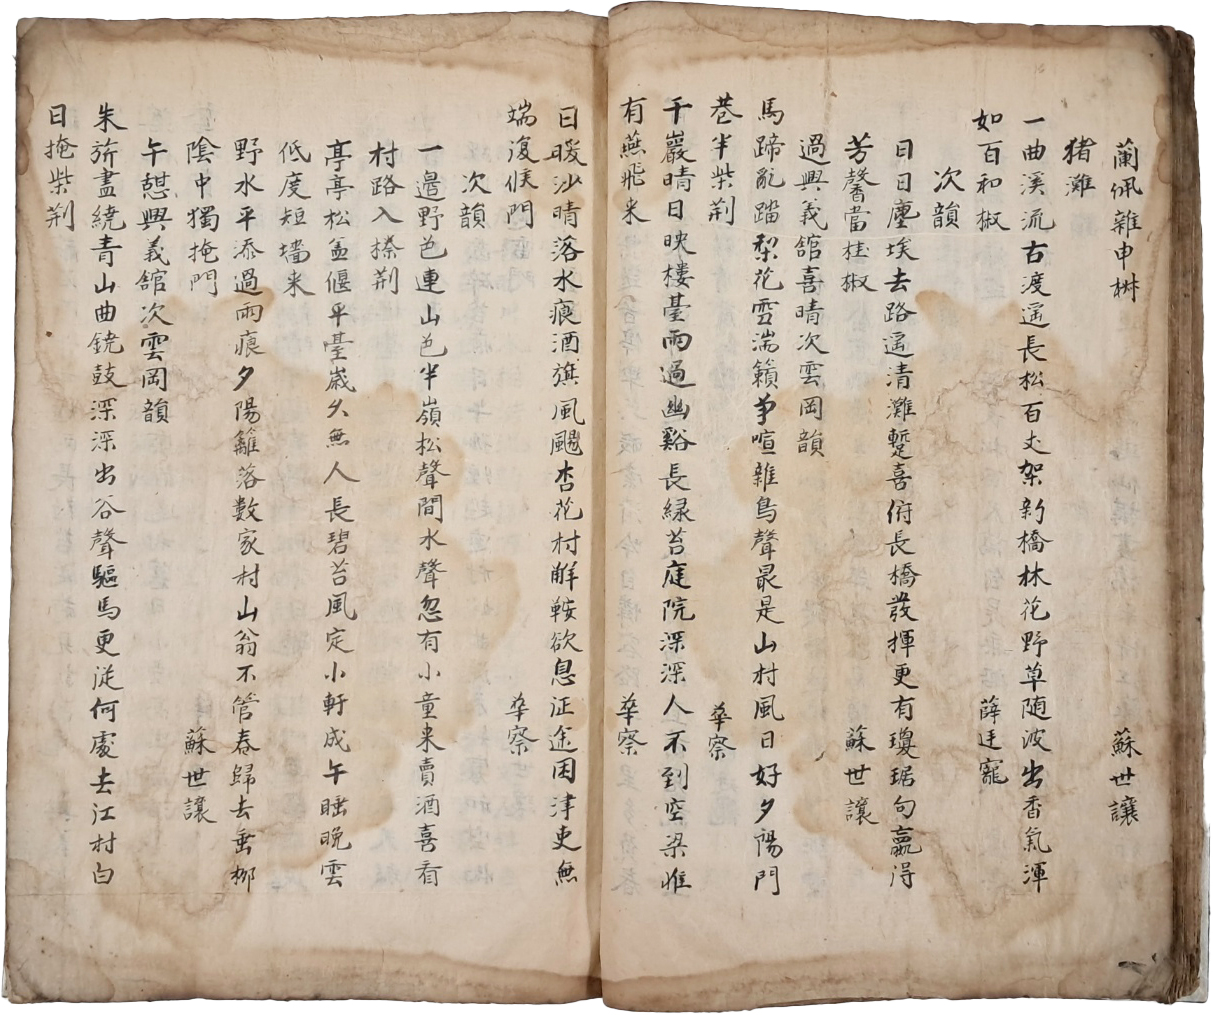 蘭佩雜申椒 蘇世讓
猪灘
一曲溪流古渡遥長松百丈架新橋林花野草随波出香氣渾
如百和椒 薛廷寵
次韻
日日塵埃去路遥清灘蹔喜俯長橋發揮更有瓊琚句贏得
芳馨當桂椒 蘇世讓
過興義舘喜晴次雲岡韻
馬蹄乱踏梨花雪湍籟争喧雜鳥聲最是山村風日好夕陽門
巷半柴荆 華察
千巖晴日映樓臺雨過幽谿長緑苔庭院深深人不到空梁惟
有燕飛来 華察
日暖沙晴落水痕酒旗風颺杏花村觧鞍欲息征途困津吏無
端復候門 華察
次韻
一邉野色連山色半嶺松聲間水聲忽有小童来賣酒喜看
村路入榛荆
亭亭松盖偃平臺歳久無人長碧苔風定小軒成午睡晩雲
低度短墻来
野水平添過雨痕夕陽籬落数家村山翁不管春歸去垂柳
陰中獨掩門 蘇世讓
午憩興義舘次雲岡韻
朱旂盡繞青山曲鐃鼓深深出谷聲驅馬更従何處去江村白
日掩柴荆